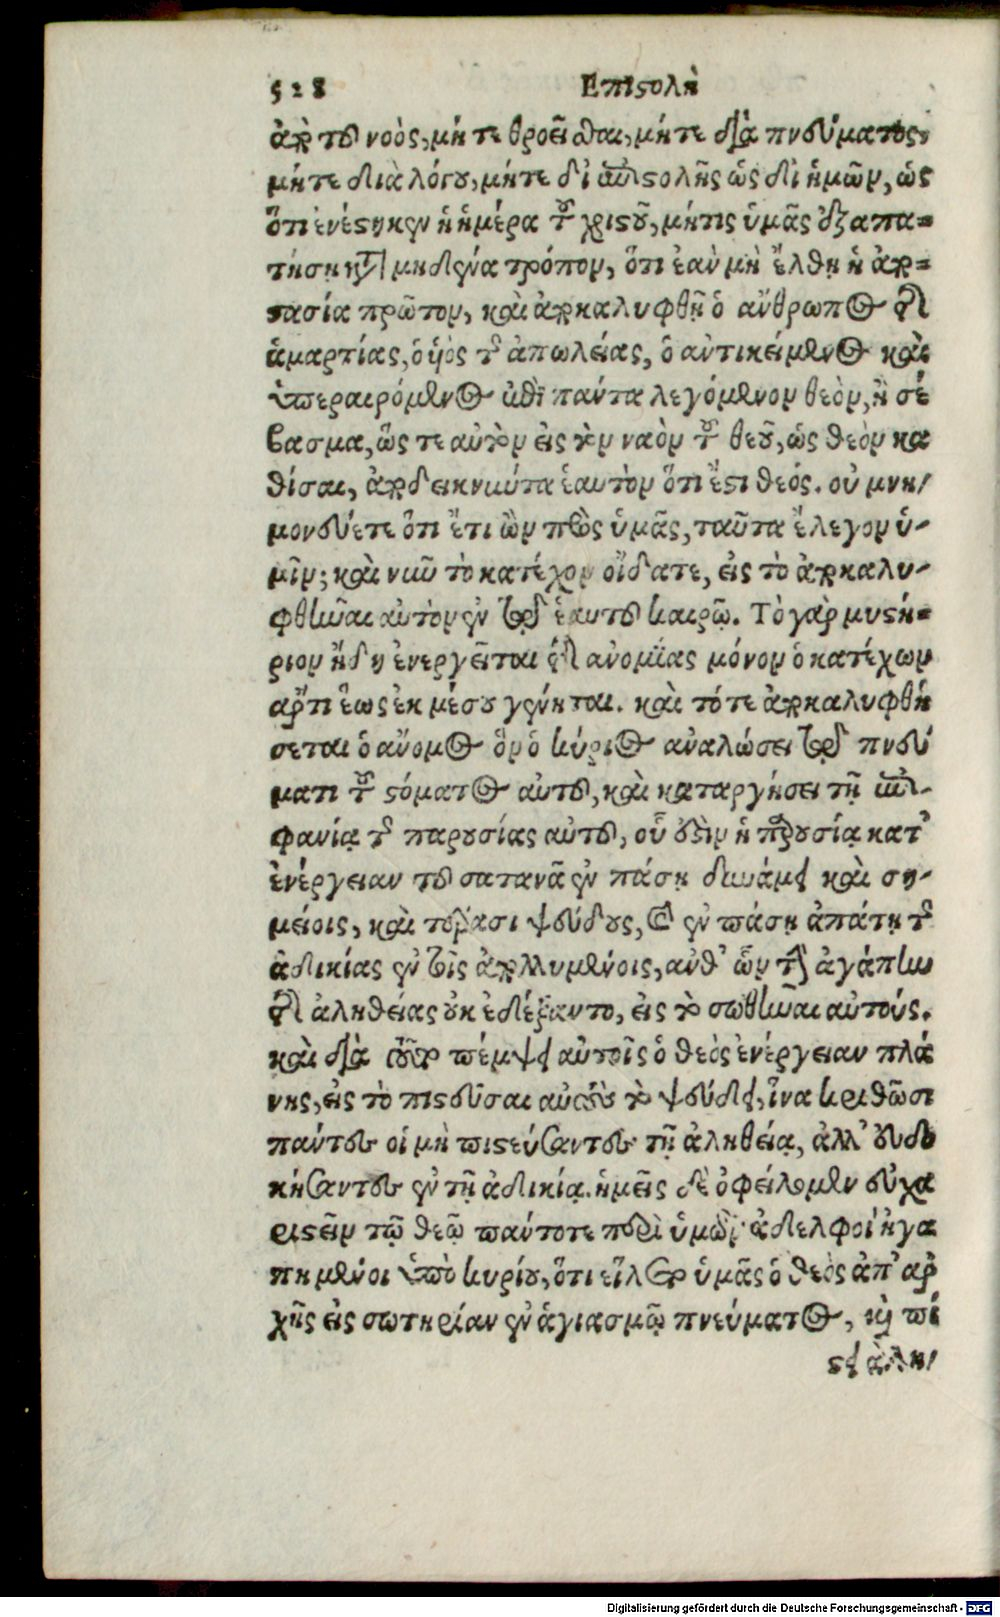 528 Επιστολὴ
ἀπὸ τοῦ νοὸς, μήτε θροεῖσθαι, μήτε διὰ πνεύματος,
μήτε διὰ λόγου, μήτε δι' ἐπιστολῆς ὡς δι' ἡμῶν, ὡς
ὅτι ἐνέστηκεν ἡ ἡμέρα τοῦ χριστοῦ, μήτις ὑμᾶς ἐξαπα=
τήσῃ κατὰ μηδένα τρόπον, ὅτι ἐὰν μὴ ἔλθῃ ἡ ἀπο=
στασία πρῶτον, καὶ ἀποκαλυφθῇ ὁ ἄνθρωπος τῆς
ἁμαρτίας, ὁ ὑὸς τῆς ἀπωλείας, ὁ ἀντικείμενος καὶ
ὑπεραιρόμενος ἐπὶ πάντα λεγόμενον θεὸν, ἢ σέ
βασμα, ὥς τε αὐτὸν εἰς τὸν ναὸν τοῦ θεοῦ, ὡς θεὸν κα
θίσαι, ἀποδεικνύντα ἑαυτὸν ὅτι ἔστι θεός. οὐ μνη/
μονεύετε ὅτι ἔτι ὢν πρὸς ὑμᾶς, ταῦτα ἔλεγον ὑ-
μῖν; καὶ νῦν τὸ κατέχον οἴδατε, εἰς τὸ ἀποκαλυ-
φθῆναι αὐτὸν ἐν τῷ ἑαυτοῦ καιρῷ. Τὸ γὰρ μυστή=
ριον ἤδη ἐνεργεῖται τῆς ἀνομίας μόνον ὁ κατέχων
ἄρτι ἕως ἐκ μέσου γένηται. καὶ τότε ἀποκαλυφθή
σεται ὁ ἄνομος ὃν ὁ κύριος ἀναλώσει τῷ πνεύ
ματι τοῦ στόματος αὐτοῦ, καὶ καταργήσει τῇ ἐπι-
φανίᾳ τῆς παρουσίας αὐτοῦ, οὗ ἐστὶν ἡ παρουσίᾳ κατ'
ἐνέργειαν τοῦ σατανᾶ ἐν πάσῃ δυνάμει καὶ ση-
μείοις, καὶ τέρασι ψεύδους, καὶ ἐν πάσῃ ἀπάτῃ τῆς
ἀδικίας ἐν τοῖς ἀπολλυμένοις, ἀνθ' ὧν τὴν ἀγάπην
τῆς ἀληθείας οὐκ ἐδέξαντο, εἰς τὸ σωθῆναι αὐτούς.
καὶ διὰ τοῦτο πέμψει αὐτοῖς ὁ θεὸς ἐνέργειαν πλά
νης, εἰς τὸ πιστεῦσαι αὐτοὺς τὸ ψεύδει, ἵνα κριθῶσι
πάντες οἱ μὴ πιστεύσαντες τῇ ἀληθείᾳ, ἀλλ' εὐδο
κήσαντες ἐν τῇ ἀδικίᾳ. ἡμεῖς δὲ ὀφείλομεν εὐχα
ριστεῖν τῷ θεῷ πάντοτε περὶ ὑμῶν ἀδελφοὶ ἠγα
πημένοι ὑπὸ κυρίου, ὅτι εἵλετο ὑμᾶς ὁ θεὸς ἀπ' ἀρ
χῆς εἰς σωτηρίαν ἐν ἁγιασμῷ πνεύματος, καὶ πί
στει ἀλη/
Digitalisierung gefördert durch die Deutsche Forschungsgemeinschaft - DFG